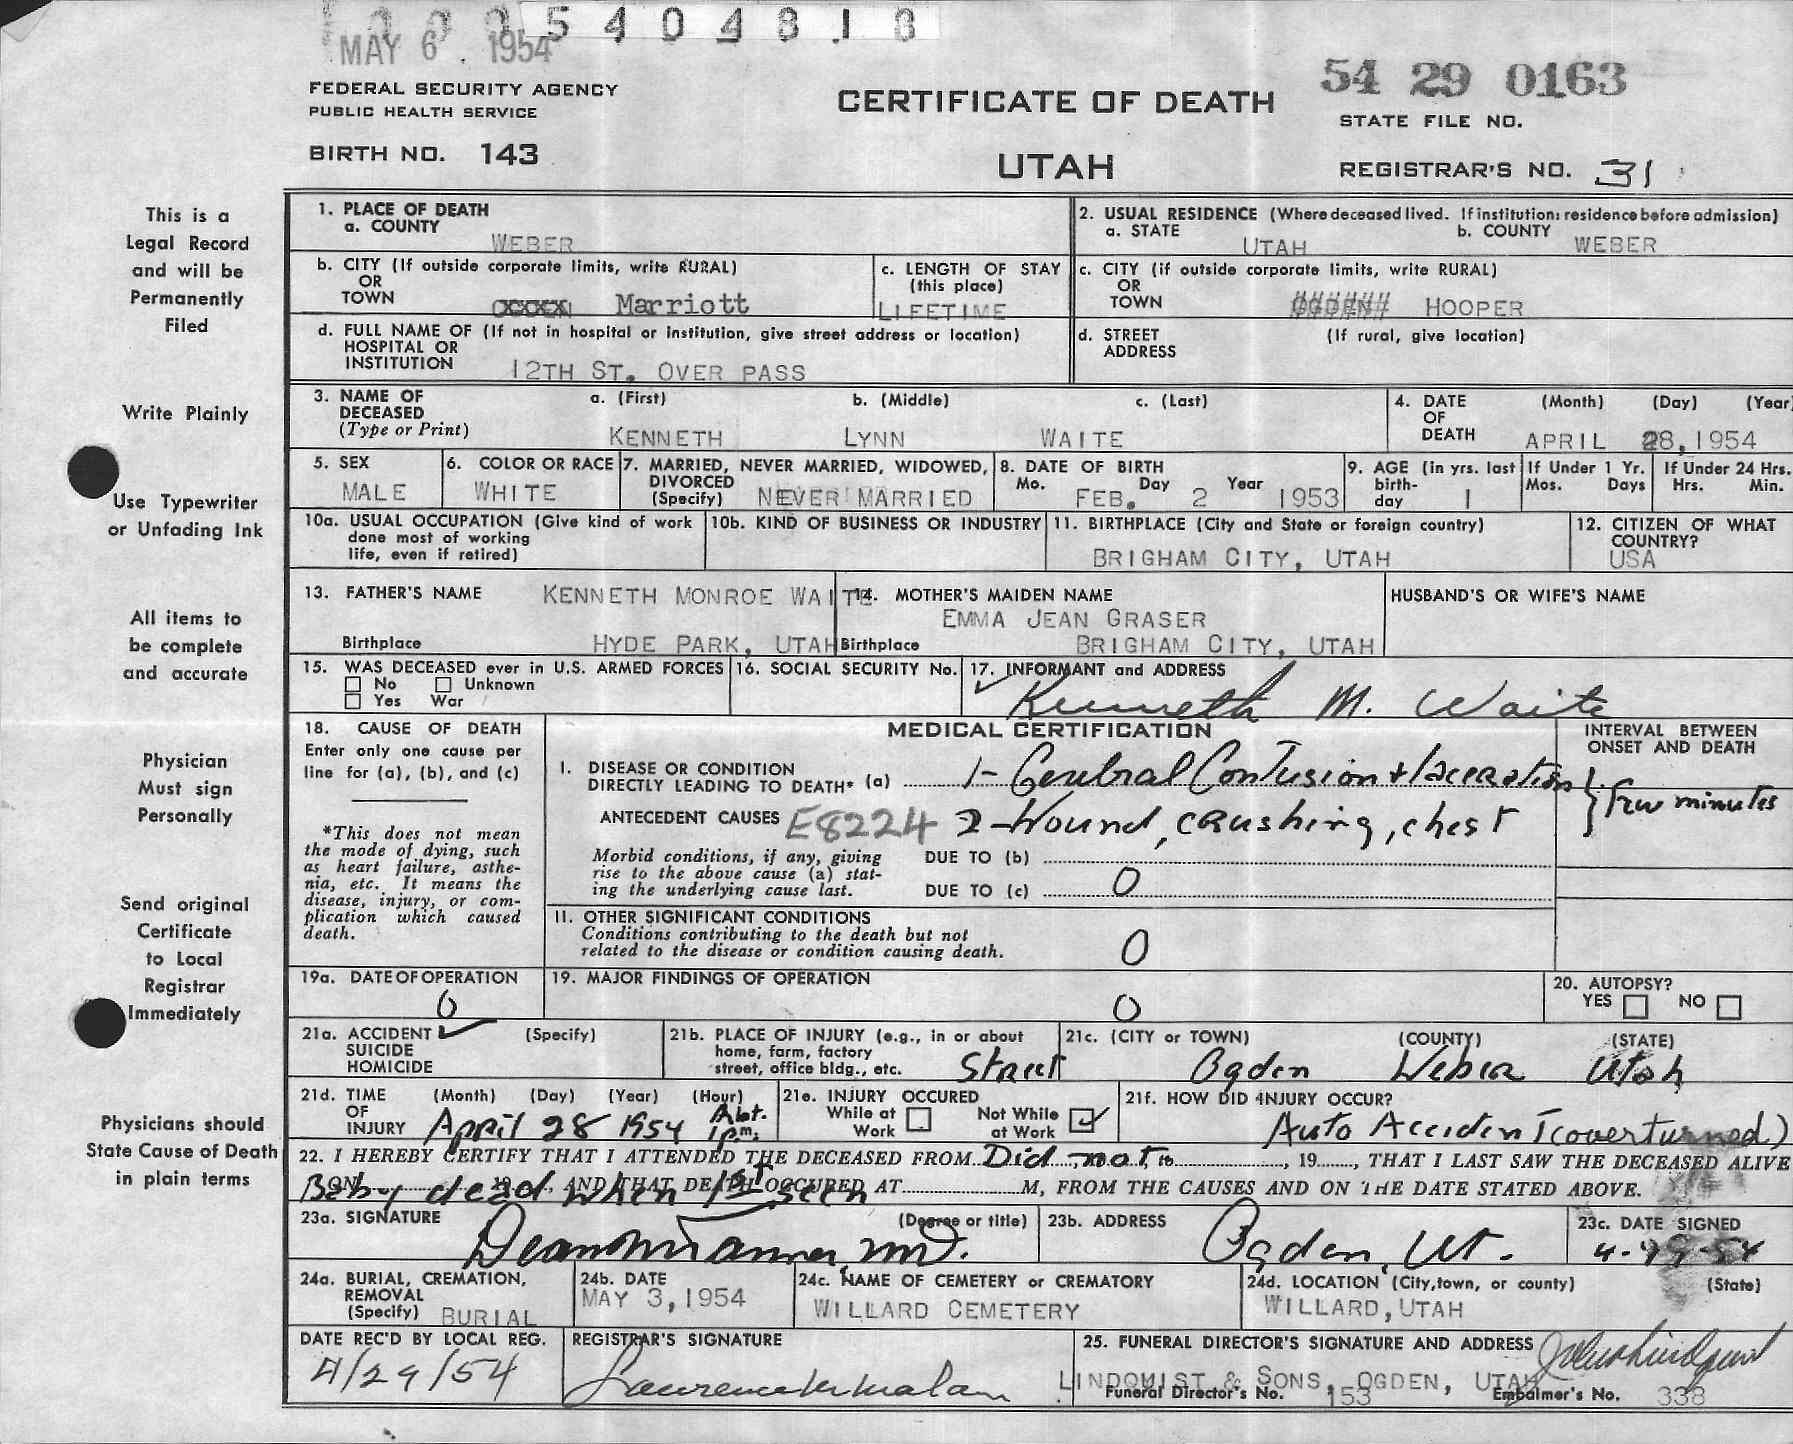 MAY 6 . 1954
5 4 0 4 8 1 8
FEDERAL SECURITY AGENCY
PUBLIC HEALTH SERVICE
BIRTH NO. 143
CERTIFICATE OF DEATH
UTAH
54 29 0163
STATE FILE NO.
REGISTRAR'S NO. 31
This is a
Legal Record
and will be
Permanently
Filed
Write Plainly
Use Typewriter
or Unfading Ink
All items to
be complete
and accurate
Physician
Must sign
Personally
Send original
Certificate
to Local
Registrar
Immediately
Physicians should
State Cause of Death
in plain terms
1. PLACE OF DEATH
a. COUNTY
WEBER
2. USUAL RESIDENCE (Where deceased lived. If institution: residence before admission)
a. STATE UTAH b. COUNTY WEBER
b. CITY (If outside corporate limits, write RURAL)
OR
TOWN Marriott
c. LENGTH OF STAY
(this place)
LIFETIME
c. CITY (if outside corporate limits, write RURAL)
OR
TOWN OGDEN HOOPER
d. FULL NAME OF (If not in hospital or institution, give street address or location)
HOSPITAL OR
INSTITUTION 12TH ST. OVER PASS
d. STREET (If rural, give location)
ADDRESS
3. NAME OF a. (First) b. (Middle) c. (Last)
DECEASED
(Type or Print) KENNETH LYNN WAITE
4. DATE (Month) (Day) (Year)
OF
DEATH APRIL 28, 1954
5. SEX
MALE
6. COLOR OR RACE
WHITE
7. MARRIED, NEVER MARRIED, WIDOWED,
DIVORCED
(Specify) NEVER MARRIED
8. DATE OF BIRTH
Mo. Day Year
FEB. 2 1953
9. AGE (in yrs. last
birth-
day 1
If Under 1 Yr.
Mos. Days
If Under 24 Hrs.
Hrs. Min.
10a. USUAL OCCUPATION (Give kind of work
done most of working
life, even if retired)
10b. KIND OF BUSINESS OR INDUSTRY
11. BIRTHPLACE (City and State or foreign country)
BRIGHAM CITY, UTAH
12. CITIZEN OF WHAT
COUNTRY?
USA
13. FATHER'S NAME KENNETH MONROE WAITE
Birthplace HYDE PARK, UTAH
14. MOTHER'S MAIDEN NAME
EMMA JEAN GRASER
Birthplace BRIGHAM CITY, UTAH
HUSBAND'S OR WIFE'S NAME
15. WAS DECEASED ever in U.S. ARMED FORCES
No Unknown
Yes War
16. SOCIAL SECURITY No.
17. INFORMANT and ADDRESS
Kenneth M. Waite
18. CAUSE OF DEATH
Enter only one cause per
line for (a), (b), and (c)
*This does not mean
the mode of dying, such
as heart failure, asthe-
nia, etc. It means the
disease, injury, or com-
plication which caused
death.
MEDICAL CERTIFICATION
INTERVAL BETWEEN
ONSET AND DEATH
I. DISEASE OR CONDITION
DIRECTLY LEADING TO DEATH* (a) 1- Cerebral Contusion + laceration
few minutes
ANTECEDENT CAUSES E8224 2- Wound, crushing, chest
Morbid conditions, if any, giving
rise to the above cause (a) stat-
ing the underlying cause last.
DUE TO (b)
DUE TO (c) 0
II. OTHER SIGNIFICANT CONDITIONS
Conditions contributing to the death but not
related to the disease or condition causing death. 0
19a. DATE OF OPERATION
0
19. MAJOR FINDINGS OF OPERATION
0
20. AUTOPSY?
YES NO
21a. ACCIDENT ✓ (Specify)
SUICIDE
HOMICIDE
21b. PLACE OF INJURY (e.g., in or about
home, farm, factory
street, office bldg., etc. Street
21c. (CITY or TOWN) (COUNTY) (STATE)
Ogden Weber Utah
21d. TIME (Month) (Day) (Year) (Hour)
OF
INJURY April 28 1954 Abt. 1pm.
21e. INJURY OCCURED
While at Work Not While at Work ✓
21f. HOW DID INJURY OCCUR?
Auto Accident (overturned)
22. I HEREBY CERTIFY THAT I ATTENDED THE DECEASED FROM Did not, to , 19 , THAT I LAST SAW THE DECEASED ALIVE
ON , 19 , AND THAT DEATH OCCURED AT M, FROM THE CAUSES AND ON THE DATE STATED ABOVE.
Baby dead when 1st seen
23a. SIGNATURE (Degree or title)
Tanner, MD.
23b. ADDRESS
Ogden, Ut.
23c. DATE SIGNED
24a. BURIAL, CREMATION,
REMOVAL
(Specify) BURIAL
24b. DATE
MAY 3, 1954
24c. NAME OF CEMETERY or CREMATORY
WILLARD CEMETERY
24d. LOCATION (City, town, or county) (State)
WILLARD, UTAH
DATE REC'D BY LOCAL REG.
4/29/54
REGISTRAR'S SIGNATURE
Lawrence M Malan
25. FUNERAL DIRECTOR'S SIGNATURE AND ADDRESS
LINDQUIST & SONS, OGDEN, UTAH
Funeral Director's No. 153 Embalmer's No. 338